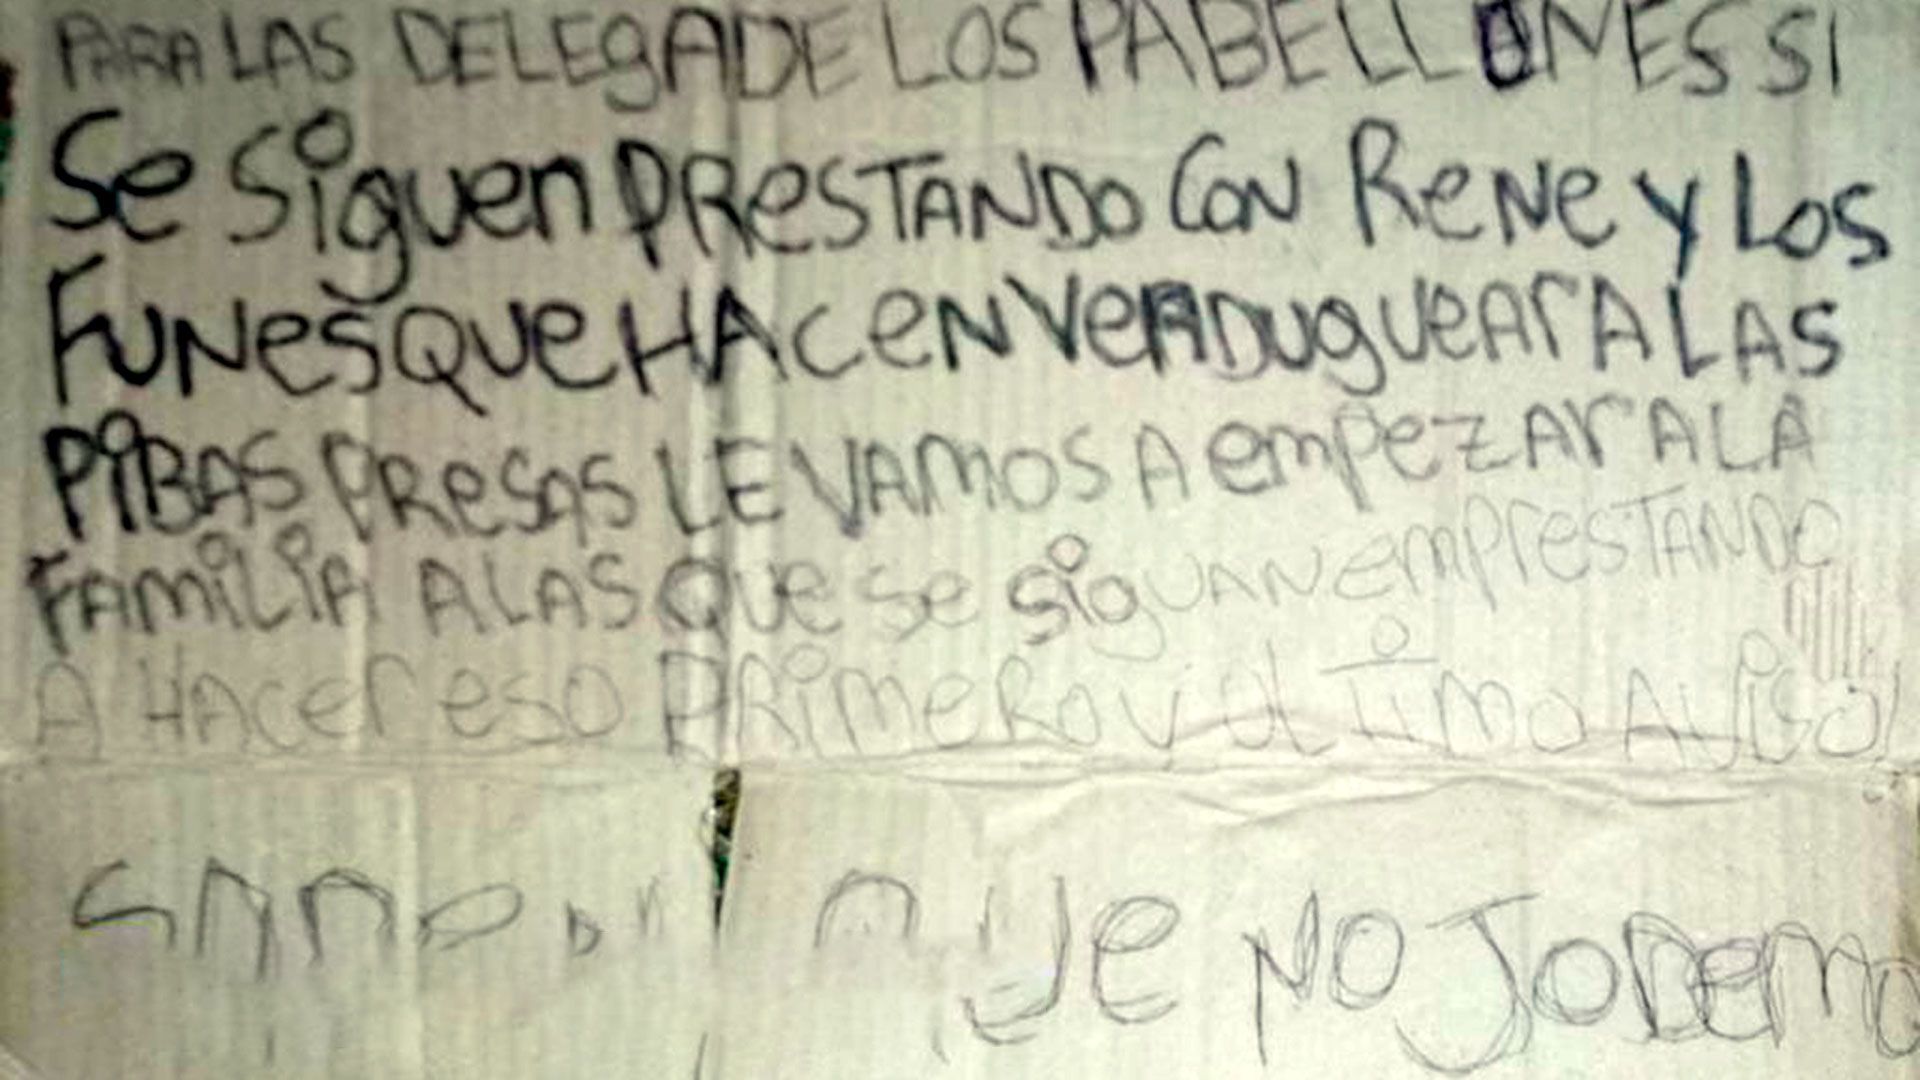 PARA LAS DELEgADE LOS PABELLONES SI
Se Siguen PResTANDO CoN ReNe y Los
FuNes Que HAceN VeRDugueAr A LAS
PiBAS PReSAS LE VAMOS A empezAr A LA
FAmiLiA A LAS Que se siguAN emPresTANDO
A HAcer eso PRimeRo y ulTimo AViso!
Que No JoDemo